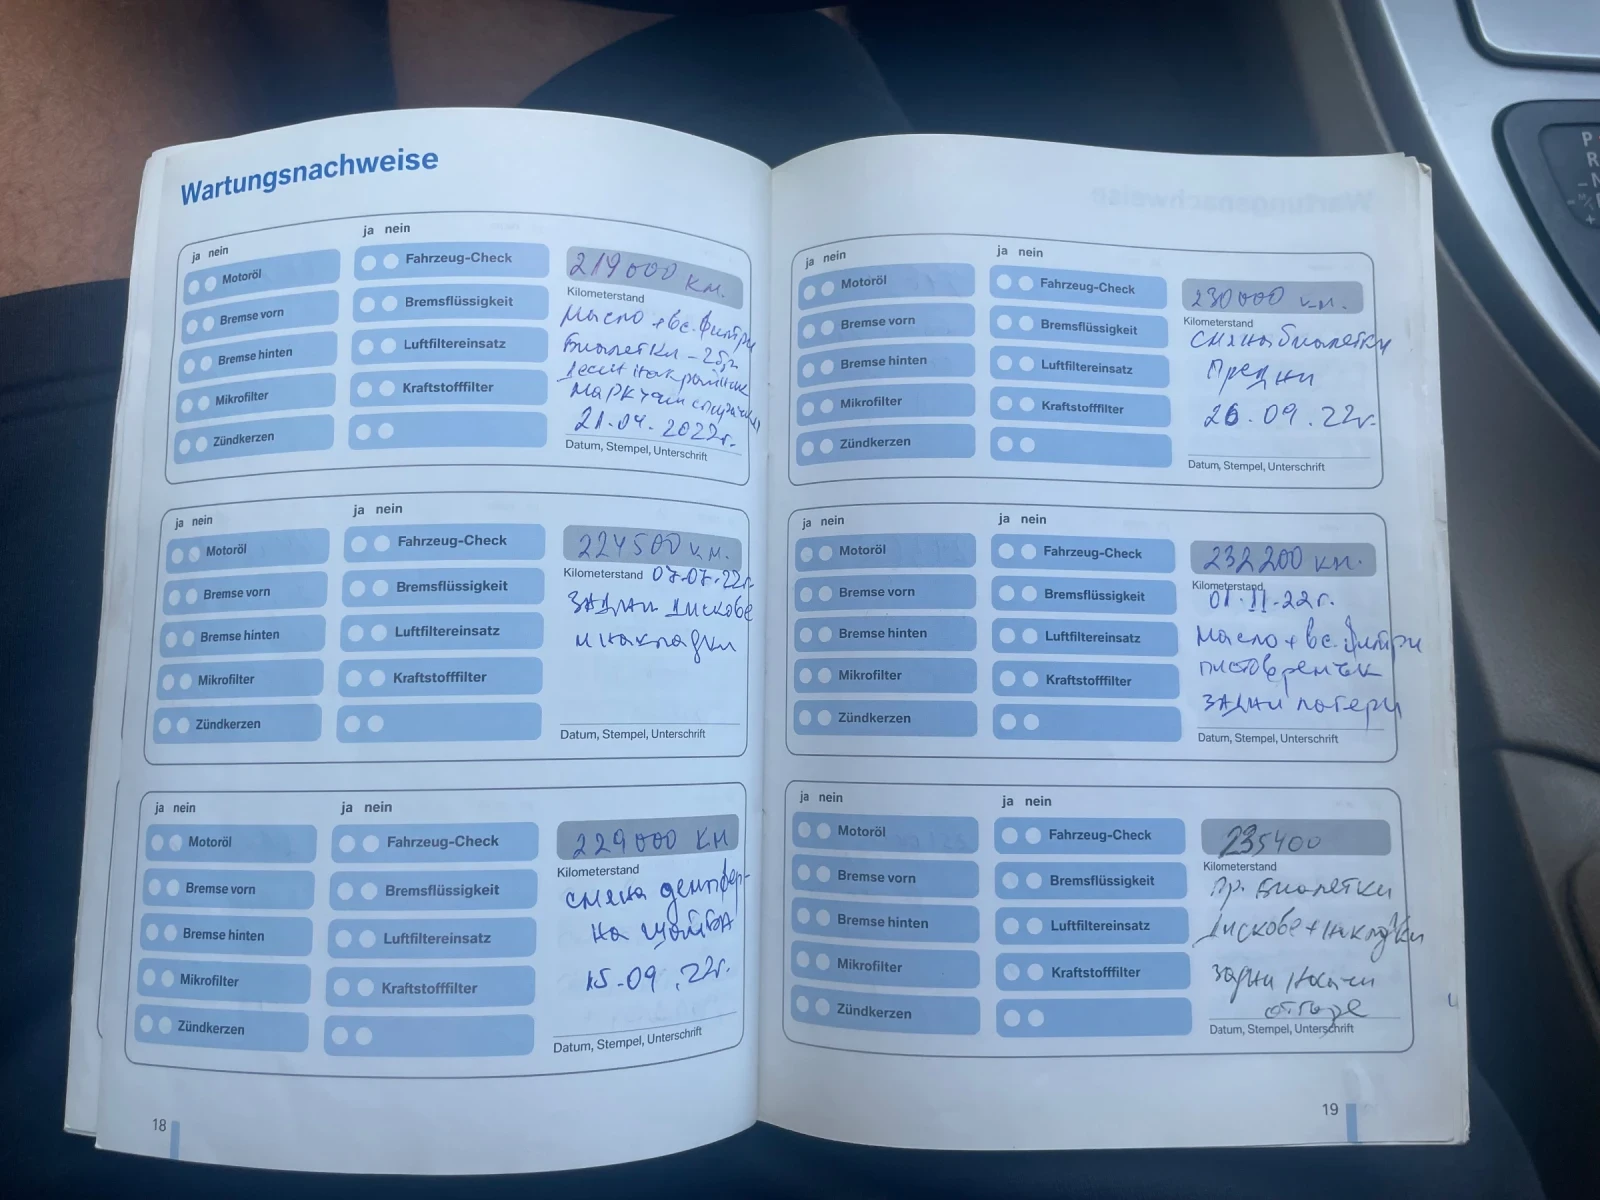 Wartungsnachweise
ja nein
ja nein
Motoröl
Bremse vorn
Bremse hinten
Mikrofilter
Zündkerzen
Fahrzeug-Check
Bremsflüssigkeit
Luftfiltereinsatz
Kraftstofffilter
219000 км.
Kilometerstand
Масло + вс. филтри
Биалетки - 2бр
Десен накрайник
маркучи спирачки
21.04.2022г.
Datum, Stempel, Unterschrift
ja nein
ja nein
Motoröl
Bremse vorn
Bremse hinten
Mikrofilter
Zündkerzen
Fahrzeug-Check
Bremsflüssigkeit
Luftfiltereinsatz
Kraftstofffilter
224500 км.
Kilometerstand 07.07.22г.
ЗАДНИ Дискове
и накладки
Datum, Stempel, Unterschrift
ja nein
ja nein
Motoröl
Bremse vorn
Bremse hinten
Mikrofilter
Zündkerzen
Fahrzeug-Check
Bremsflüssigkeit
Luftfiltereinsatz
Kraftstofffilter
229000 КМ
Kilometerstand
смяна демпфер-
на шайба
15.09.22г.
Datum, Stempel, Unterschrift
18
ja nein
ja nein
Motoröl
Bremse vorn
Bremse hinten
Mikrofilter
Zündkerzen
Fahrzeug-Check
Bremsflüssigkeit
Luftfiltereinsatz
Kraftstofffilter
230000 км.
Kilometerstand
смяна биалетки
Предни
26.09.22г.
Datum, Stempel, Unterschrift
ja nein
ja nein
Motoröl
Bremse vorn
Bremse hinten
Mikrofilter
Zündkerzen
Fahrzeug-Check
Bremsflüssigkeit
Luftfiltereinsatz
Kraftstofffilter
232200 км.
Kilometerstand
01.11.22г.
Масло + вс. филтри
пистов ремък
ЗАДНИ лагери
Datum, Stempel, Unterschrift
ja nein
ja nein
Motoröl
Bremse vorn
Bremse hinten
Mikrofilter
Zündkerzen
Fahrzeug-Check
Bremsflüssigkeit
Luftfiltereinsatz
Kraftstofffilter
235400
Kilometerstand
Пр. Биалетки
Дискове + накладки
задни носачи
отгоре
Datum, Stempel, Unterschrift
19
P
R